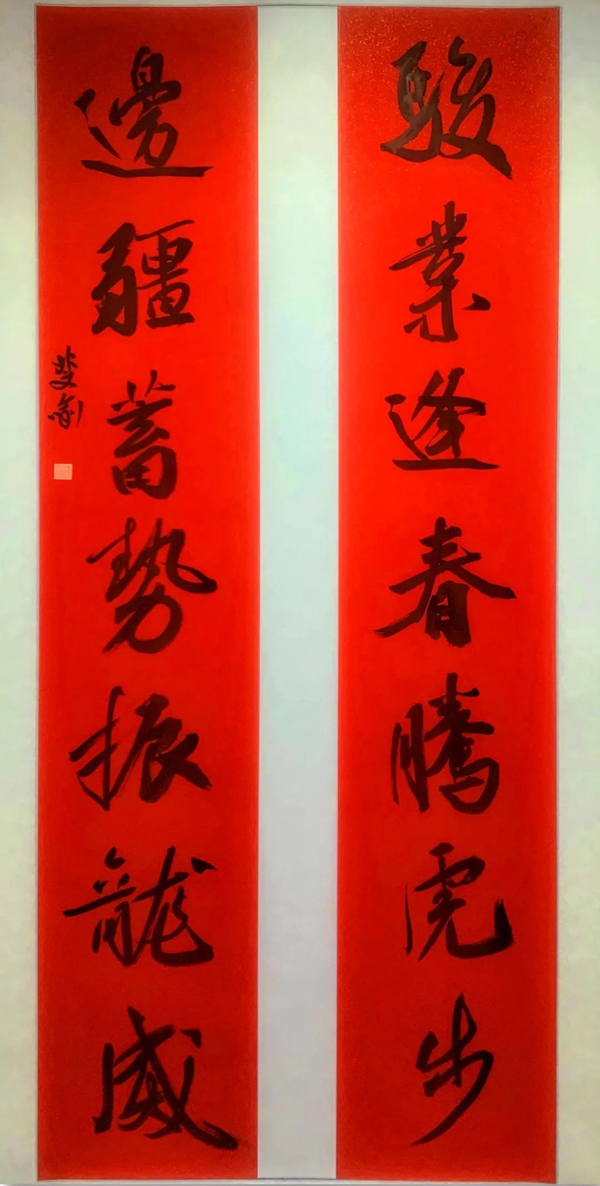 駿業逢春騰虎步
邊疆蓄勢振龍威